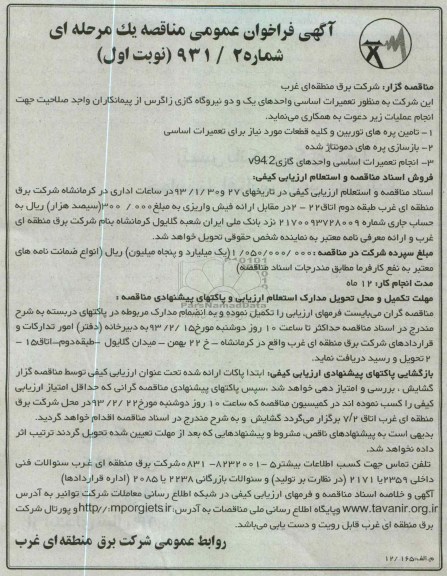 آگهی فراخوان عمومی مناقصه یك مرحله ای
شماره۲ / ۹۳۱ (نوبت اول)
مناقصه گزار: شرکت برق منطقه‌ای غرب
این شرکت به منظور تعمیرات اساسی واحدهای یک و دو نیروگاه گازی زاگرس از پیمانکاران واجد صلاحیت جهت
انجام عملیات زیر دعوت به همکاری می‌نماید.
۱- تامین پره های توربین و کلیه قطعات مورد نیاز برای تعمیرات اساسی
۲- بازسازی پره های دمونتاژ شده
۳- انجام تعمیرات اساسی واحدهای گازی v94.2
فروش اسناد مناقصه و استعلام ارزیابی کیفی:
اسناد مناقصه و استعلام ارزیابی کیفی در تاریخهای ۲۷ و۹۳/۱/۳۰ در ساعات اداری در کرمانشاه شرکت برق
منطقه ای غرب طبقه دوم اتاق۲۲ - ۲در مقابل ارائه فیش واریزی به مبلغ۳۰۰/۰۰۰ (سیصد هزار) ریال به
حساب جاری شماره ۲۱۷۰۰۹۳۷۲۸۰۰۹ نزد بانک ملی ایران شعبه گلایول کرمانشاه بنام شرکت برق منطقه ای
غرب و ارائه معرفی نامه معتبر به نماینده شخص حقوقی تحویل خواهد شد.
مبلغ سپرده شرکت در مناقصه :۱/۰۵۰/۰۰۰/۰۰۰(یک میلیارد و پنجاه میلیون) ریال (انواع ضمانت نامه های
معتبر به نفع کارفرما مطابق مندرجات اسناد مناقصه)
مدت انجام کار: ۱۲ ماه
مهلت تکمیل و محل تحویل مدارک استعلام ارزیابی و پاکتهای پیشنهادی مناقصه :
مناقصه گران می‌بایست فرمهای ارزیابی را تکمیل نموده و به انضمام مدارک مربوطه در پاکتهای دربسته به شرح
مندرج در اسناد مناقصه حداکثر تا ساعت ۱۰ روز دوشنبه مورخ۹۳/۲/۱۵ به دبیرخانه (دفتر) امور تدارکات و
قراردادهای شرکت برق منطقه ای غرب واقع در کرمانشاه - خ ۲۲ بهمن - میدان گلایول -طبقه‌دوم-اتاق۱۵ -
۲تحویل و رسید دریافت نماید.
بازگشایی پاکتهای پیشنهادی ارزیابی کیفی: ابتدا پاکات ارائه شده تحت عنوان ارزیابی کیفی توسط مناقصه گزار
گشایش ، بررسی و امتیاز دهی خواهد شد .سپس پاکتهای پیشنهادی مناقصه گرانی که حداقل امتیاز ارزیابی
کیفی را کسب نموده اند در کمیسیون مناقصه که ساعت ۱۰ روز دوشنبه مورخ۹۳/۲/۲۲ در محل شرکت برق
منطقه ای غرب اتاق ۷/۲ برگزار می‌گردد گشایش و به شرح مندرج در اسناد مناقصه اقدام خواهد گردید.
بدیهی است به پیشنهادهای ناقص، مشروط و پیشنهادهایی که بعد از مهلت تعیین شده تحویل گردند ترتیب اثر
داده نخواهد شد.
تلفن تماس جهت کسب اطلاعات بیشتر۵ -۸۲۳۲۰۰۱ -۰۸۳۱شرکت برق منطقه ای غرب سئوالات فنی
داخلی ۲۳۵۹یا ۲۱۷۱ (در نظارت بر تولید) و سئوالات بازرگانی ۲۲۳۸ یا ۲۰۸۵ (اداره قراردادها)
آگهی و خلاصه اسناد مناقصه و فرمهای ارزیابی کیفی در شبکه اطلاع رسانی معاملات شرکت توانیر به آدرس
www.tavanir.org.ir وپایگاه اطلاع رسانی ملی مناقصات به آدرس: http//:imporgiets.ir و پورتال شرکت
برق منطقه ای غرب قابل رویت و دست یابی می‌باشد.
روابط عمومی شرکت برق منطقه ای غرب
م.الف/۱۲/۱۶۵
ParsNamadData